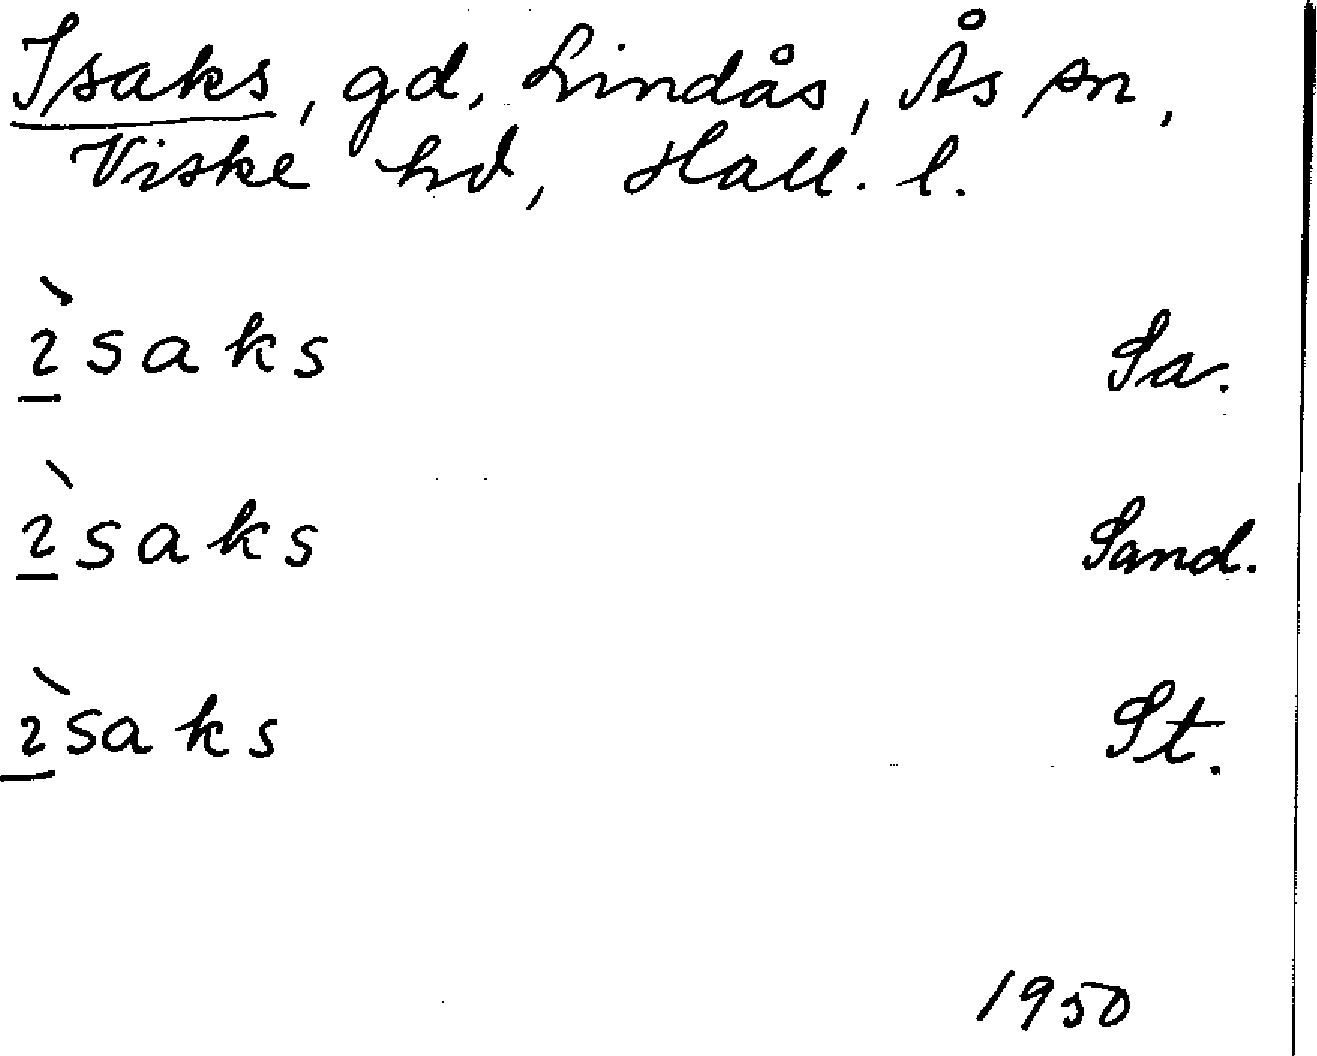 Isaks, gd, Lindås, Ås sn,
Viske hd, Hall. l.
ı̱̀saks Sa.
ı̱̀saks Sand.
ı̱̀saks St.
1950